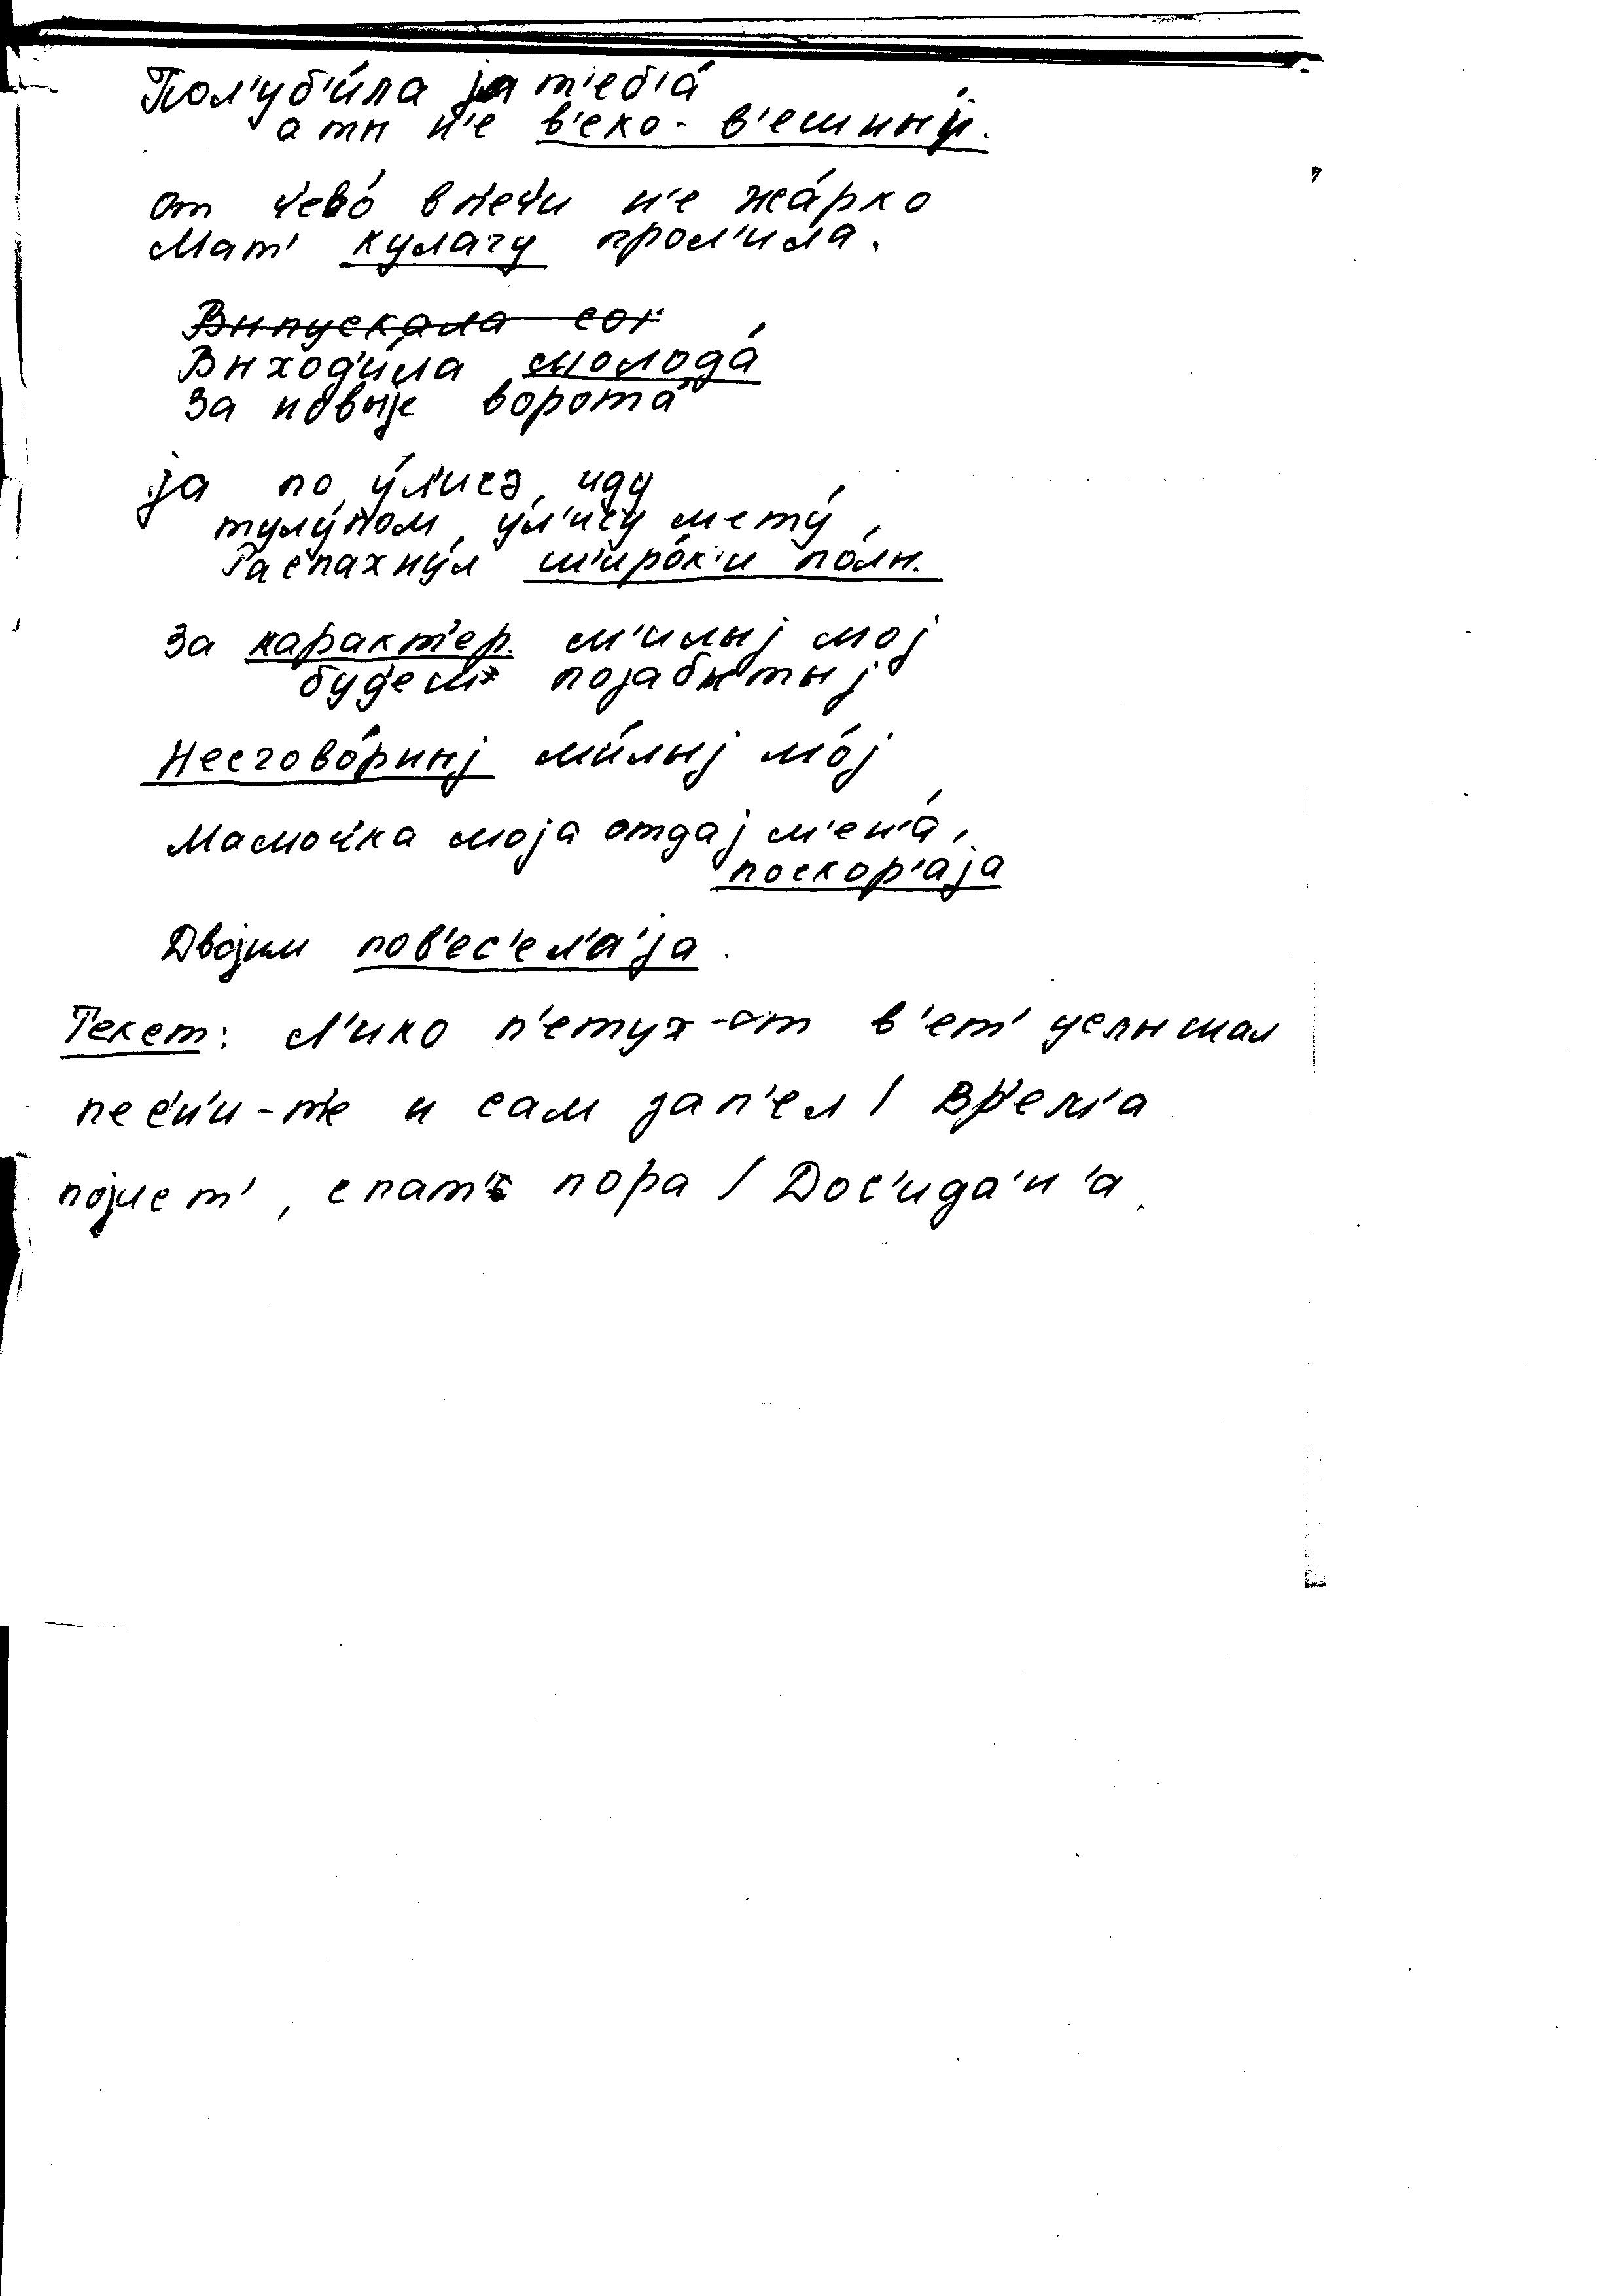 Пол'уб'и́ла ја т'еб'а́
а ты н'е в'еко- в'ешныј.
от ч'ево́ в п'еч'и н'е жа́рко
Мат' кулагу прол'ила.
~~Выпускала сог~~
Выход'и́ла молода́
За новыје ворота́
ја по у́л'исэ иду
тулу́пом у́л'ису мету́,
Распахну́л ш'иро́к'и по́лы.
За карахт'ер м'илыј мој
буд'еш позабытыј
Несгово́рныј ми́лыј мој
Мамоч'ка моја отдај м'ен'а́,
поскор'аја
Двојим пов'ес'ел'а'ја.
Текст: Л'ико п'етух-от в'ет' услышал
пес'н'и-т'е и сам зап'ел / Вр'ем'а
појиет', спат' пора / Дос'ида'н'а.